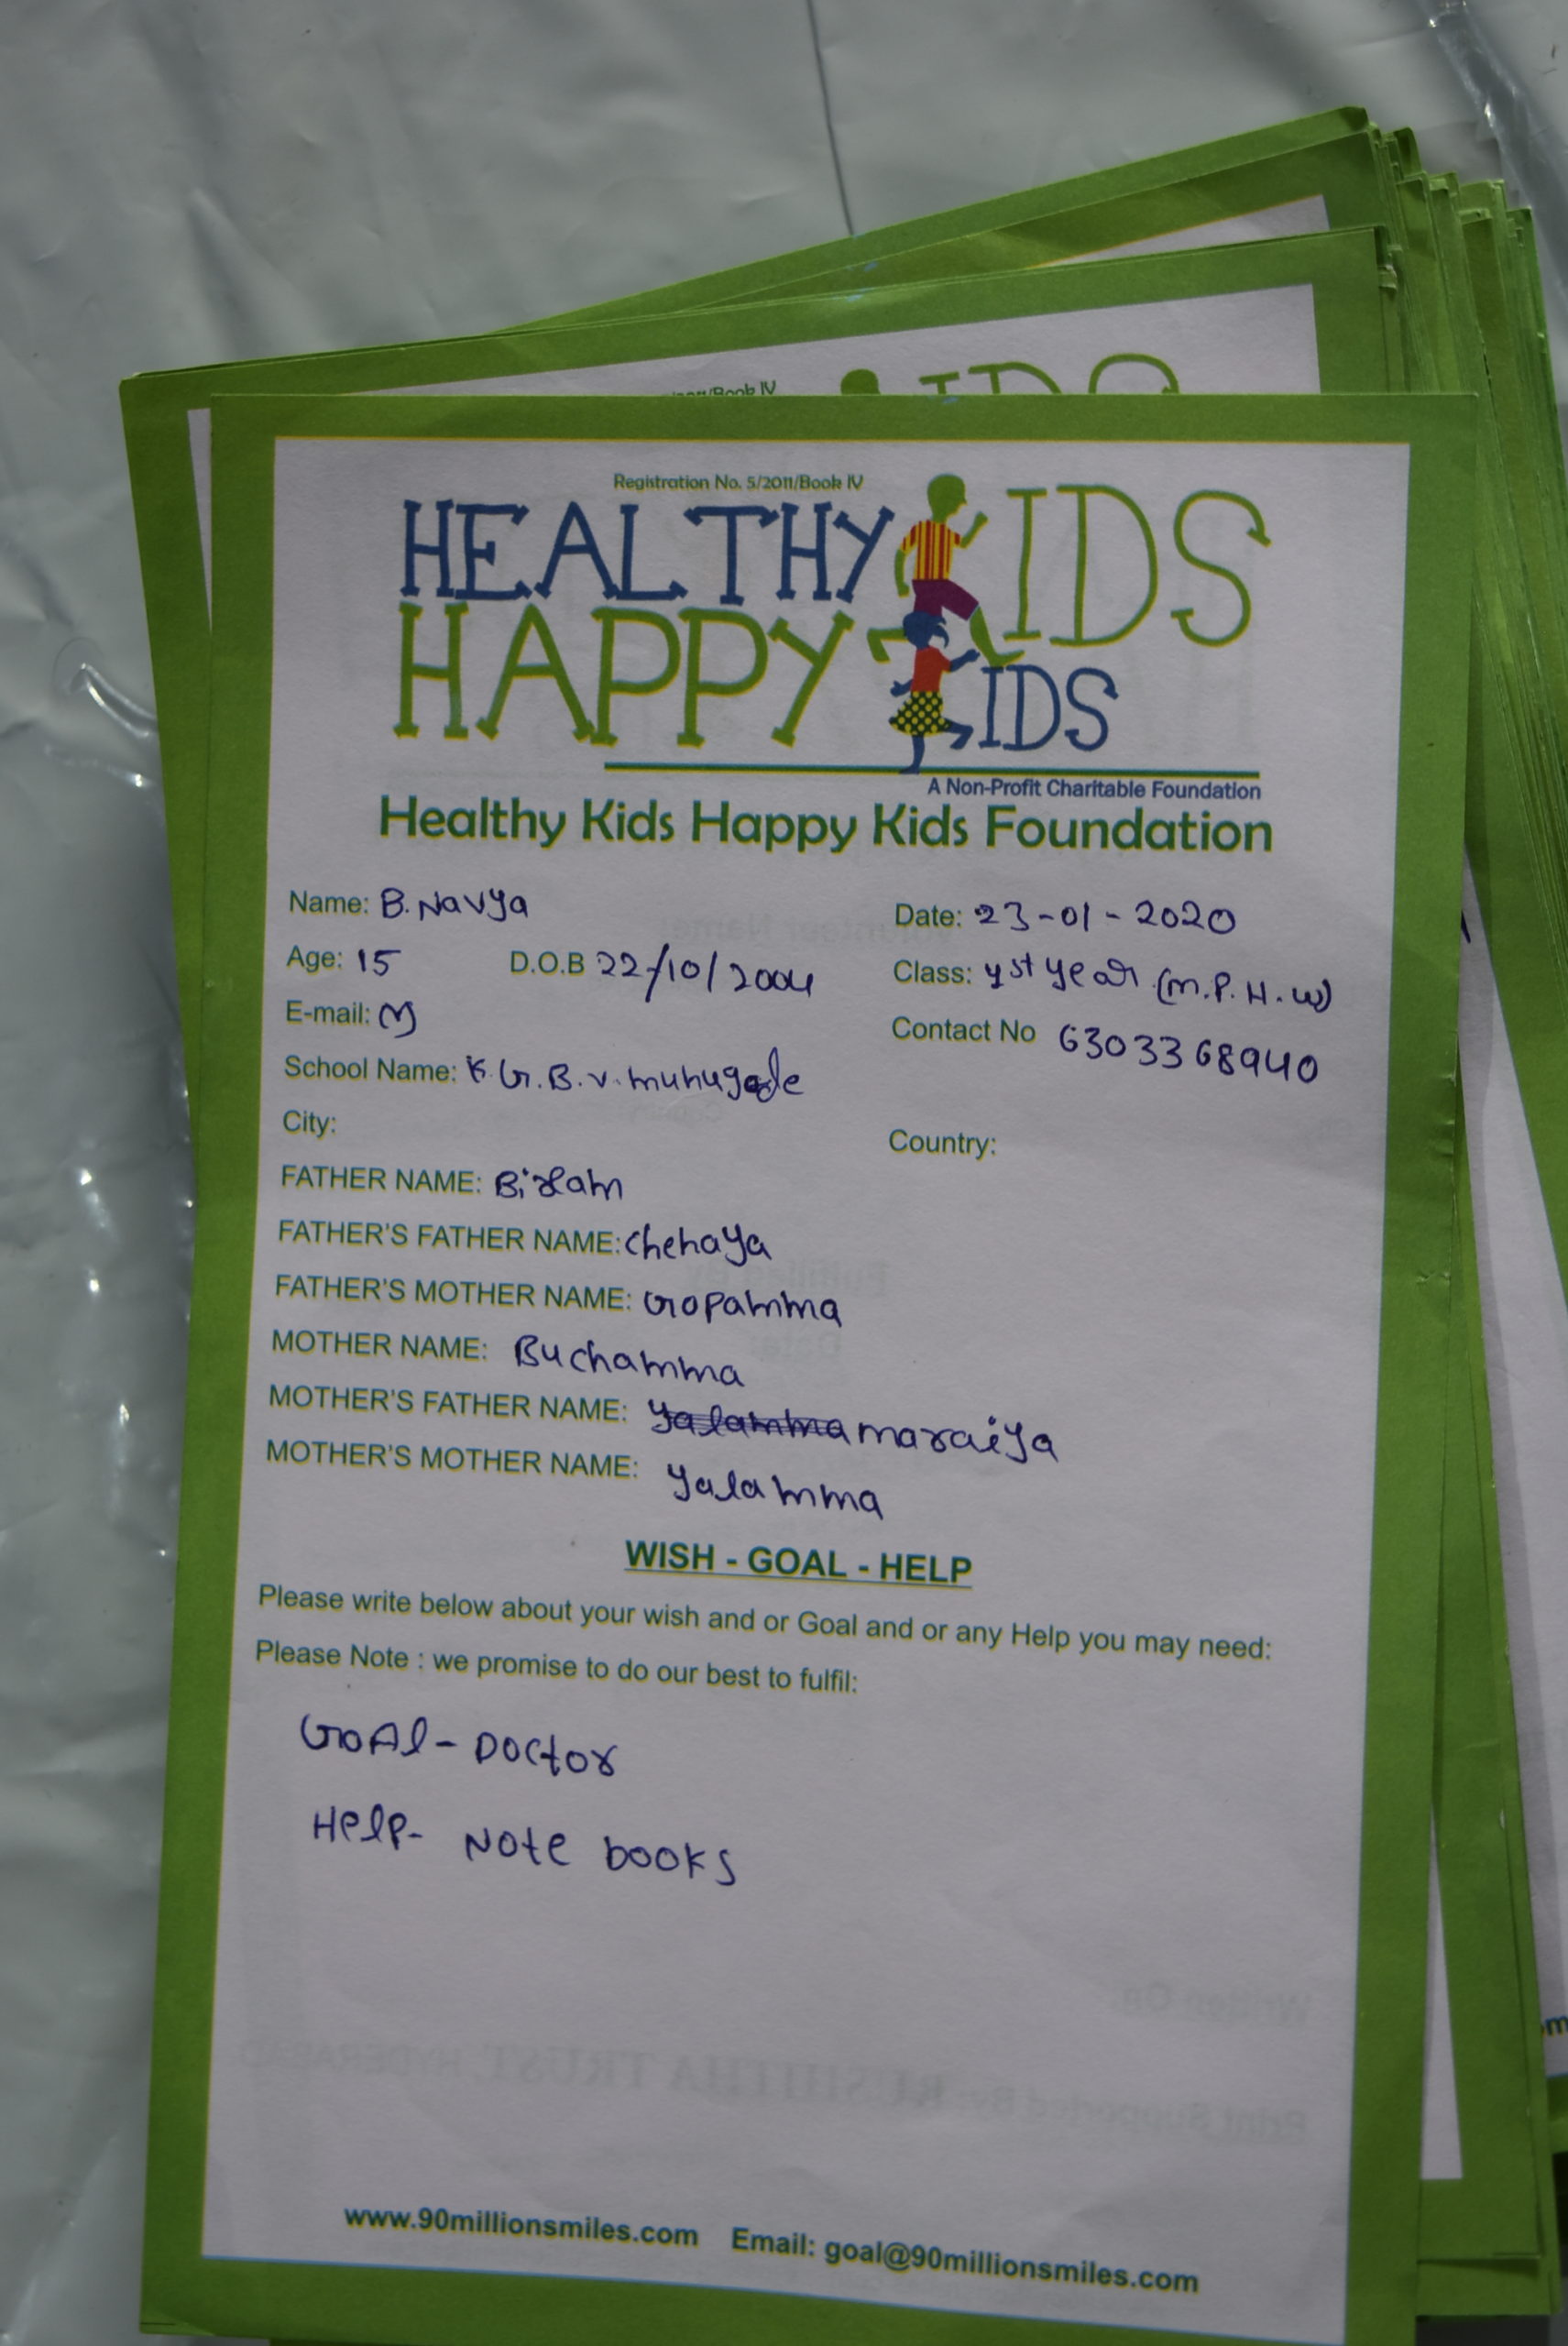 Registration No. 5/2011/Book IV
HEALTHY KIDS
HAPPY KIDS
A Non-Profit Charitable Foundation
Healthy Kids Happy Kids Foundation
Name: B. Navya Date: 23-01-2020
Age: 15 D.O.B 22/10/2004 Class: yst year (M.P.H.W)
E-mail: Contact No 6303368940
School Name: K.G.B.V. munugode
City: Country:
FATHER NAME: Bixam
FATHER'S FATHER NAME: Chenaya
FATHER'S MOTHER NAME: Gopamma
MOTHER NAME: Buchamma
MOTHER'S FATHER NAME: yalamma maraiya
MOTHER'S MOTHER NAME: yalamma
WISH - GOAL - HELP
Please write below about your wish and or Goal and or any Help you may need:
Please Note : we promise to do our best to fulfil:
GOAl - Doctor
Help- Note books
www.90millionsmiles.com Email: goal@90millionsmiles.com